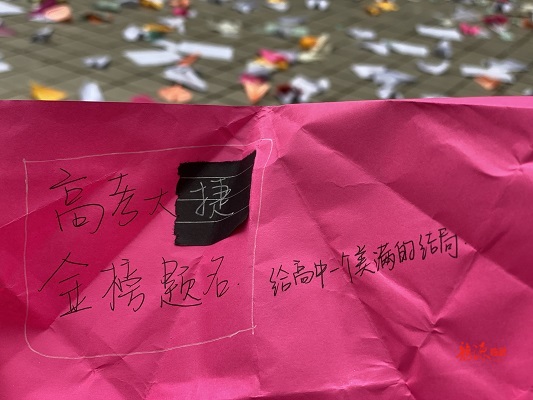 高考大捷
金榜题名.
给高中一个美满的结局